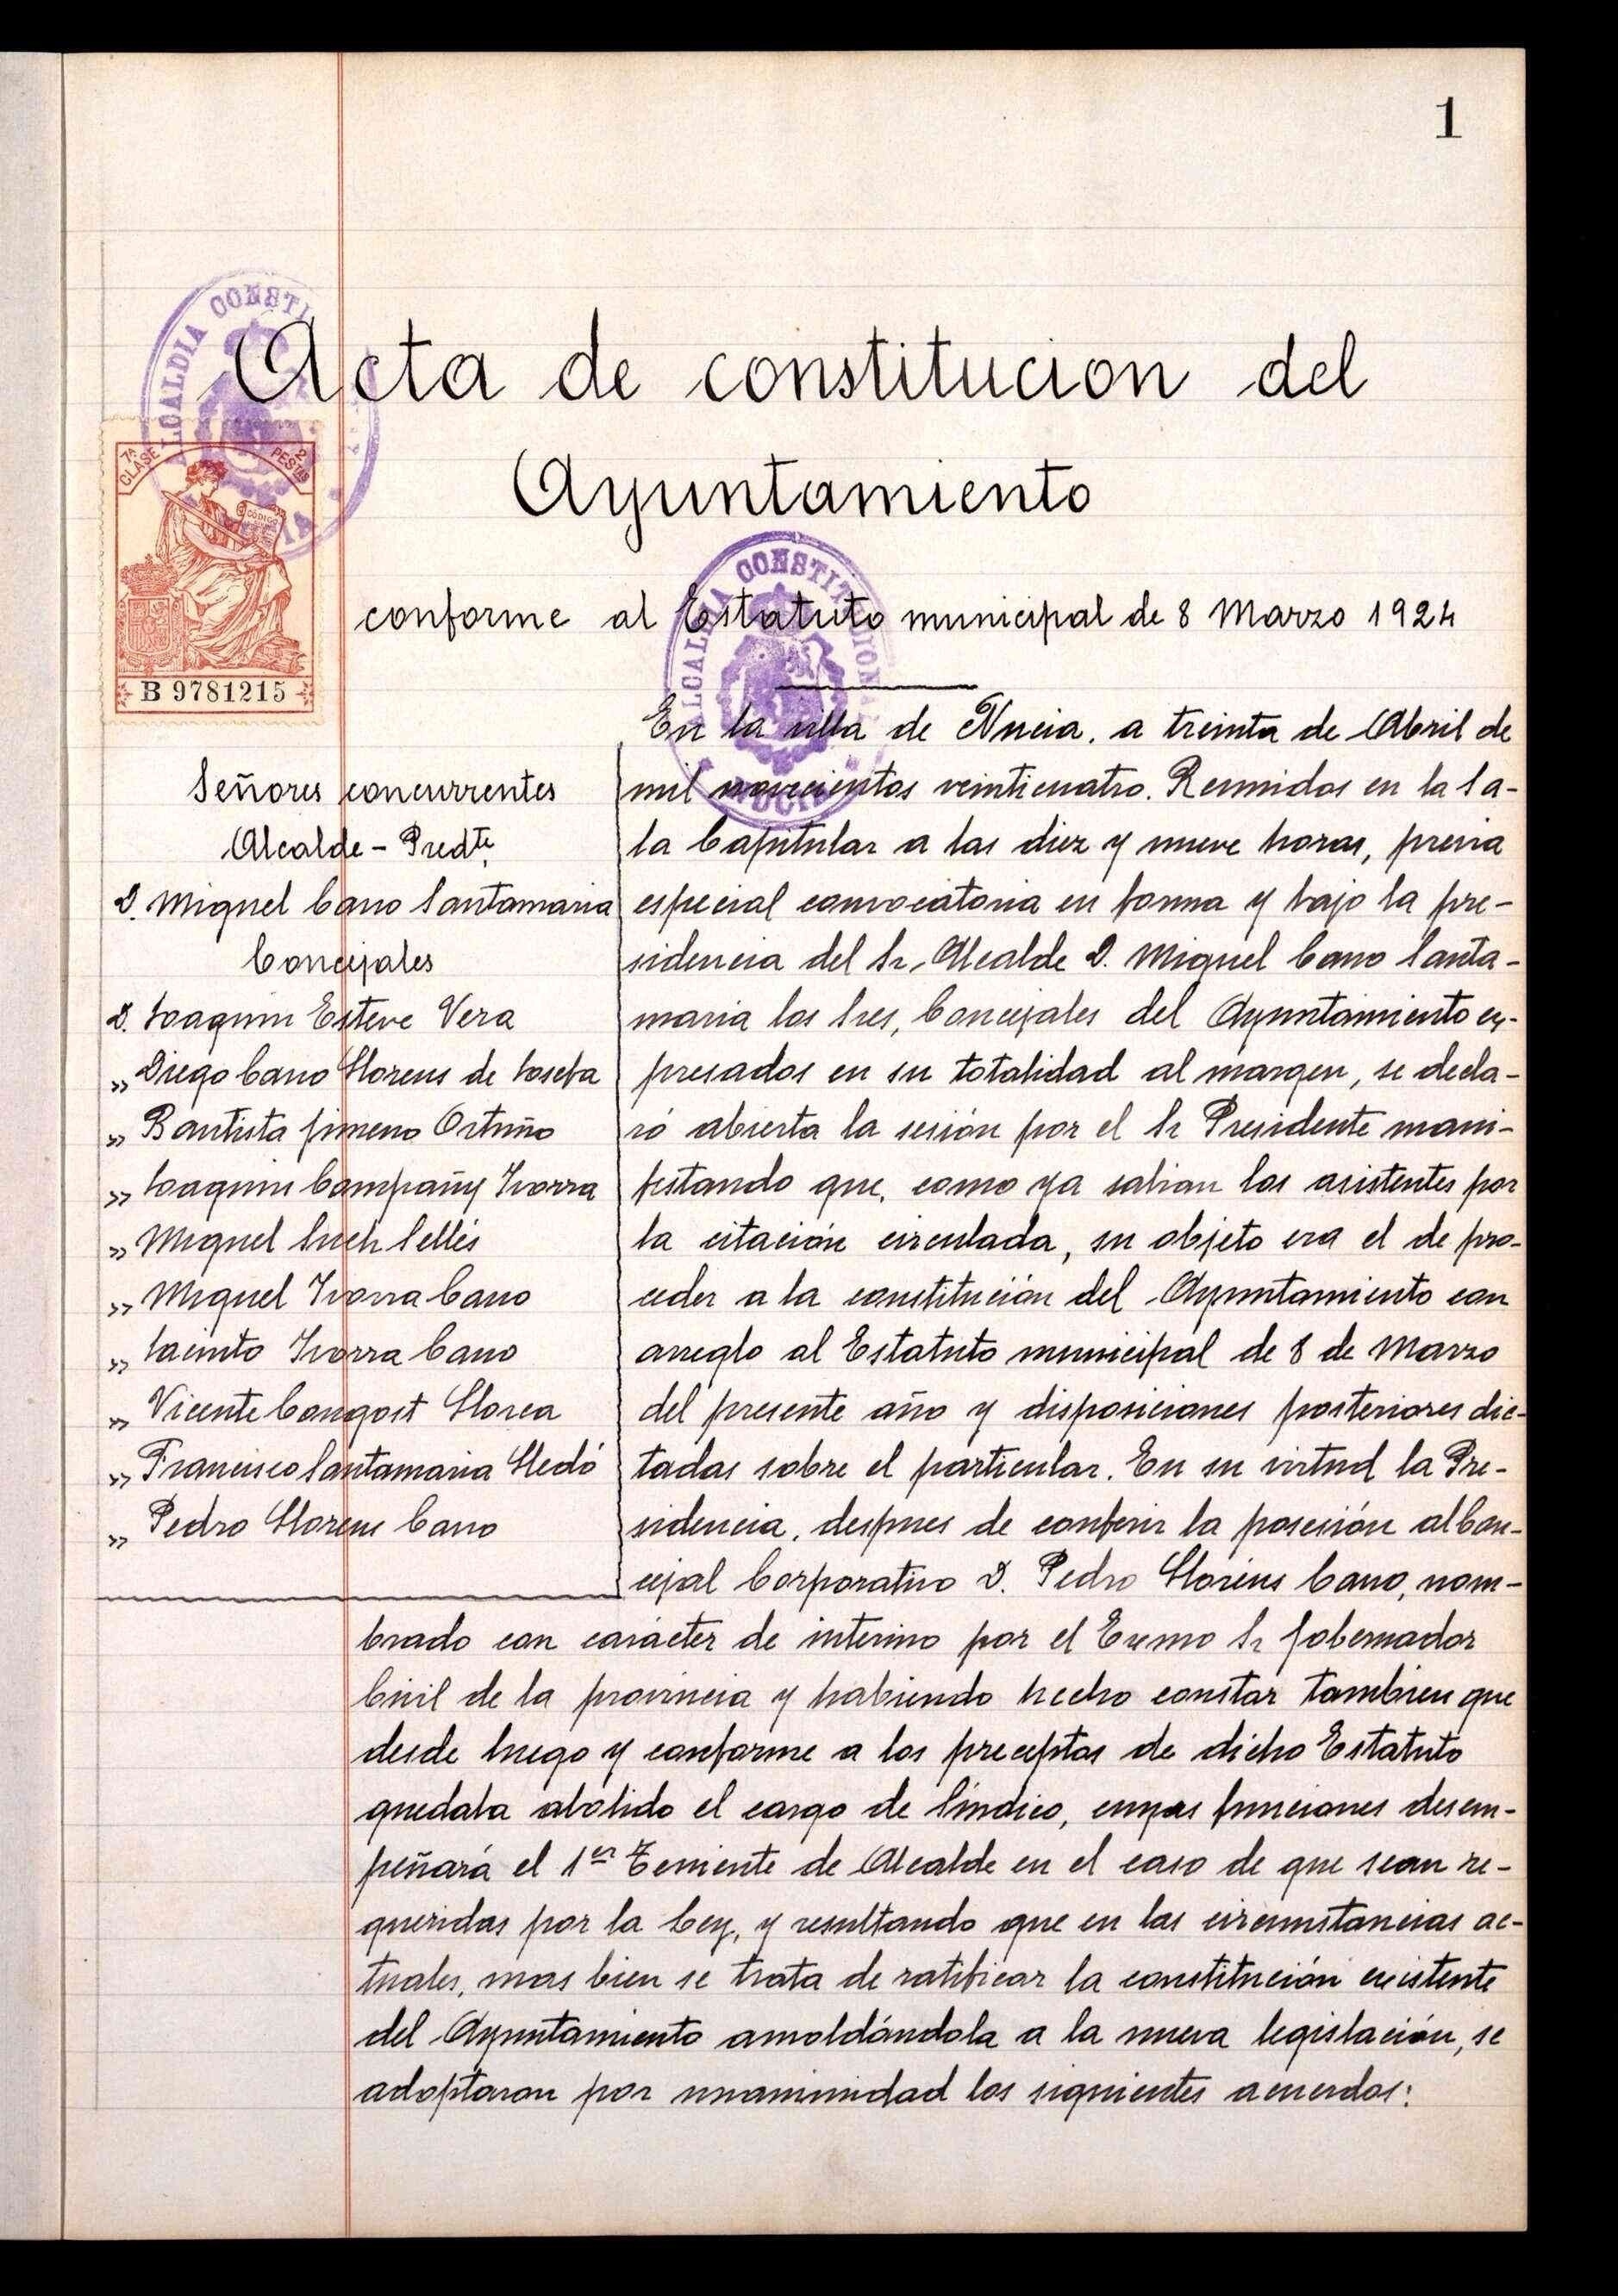 1
ALCALDIA CONSTI
Acta de constitucion del
Ayuntamiento
7ª CLASE
2 PESTAS
CODIGO
B 9781215
ALCALDIA CONSTITUCIONAL
NUCIA
conforme al Estatuto municipal de 8 Marzo 1924
Señores concurrentes
Alcalde - Predte.
D. Miguel Cano Santamaria
Concejales
D. Joaquin Esteve Vera
" Diego Cano Llorens de Josefa
" Bautista Gimeno Ortuño
" Joaquin Company Ivorra
" Miguel Such Sellés
" Miguel Ivorra Cano
" Jacinto Ivorra Cano
" Vicente Congost Llorca
" Francisco Santamaria Lledó
" Pedro Llorens Cano
En la villa de Nucia, a treinta de Abril de
mil novecientos veinticuatro. Reunidos en la Sa-
la Capitular a las diez y nueve horas, previa
especial convocatoria en forma y bajo la pre-
sidencia del Sr. Alcalde D. Miguel Cano Santa-
maria los Sres. Concejales del Ayuntamiento ex-
presados en su totalidad al margen, se decla-
ró abierta la sesión por el Sr Presidente mani-
festando que, como ya sabian los asistentes por
la citación circulada, su objeto era el de pro-
ceder a la constitución del Ayuntamiento con
arreglo al Estatuto municipal de 8 de Marzo
del presente año y disposiciones posteriores dic-
tadas sobre el particular. En su virtud la Pre-
sidencia, despues de conferir la posesión al Con-
cejal Corporativo D. Pedro Llorens Cano, nom-
brado con carácter de interino por el Excmo Sr Gobernador
Civil de la provincia y habiendo hecho constar tambien que
desde luego y conforme a los preceptos de dicho Estatuto
quedaba abolido el cargo de Síndico, cuyas funciones desem-
peñará el 1er Teniente de Alcalde en el caso de que sean re-
queridas por la Ley, y resultando que en las circunstancias ac-
tuales, mas bien se trata de ratificar la constitución existente
del Ayuntamiento amoldándola a la nueva legislación, se
adoptaron por unanimidad los siguientes acuerdos: